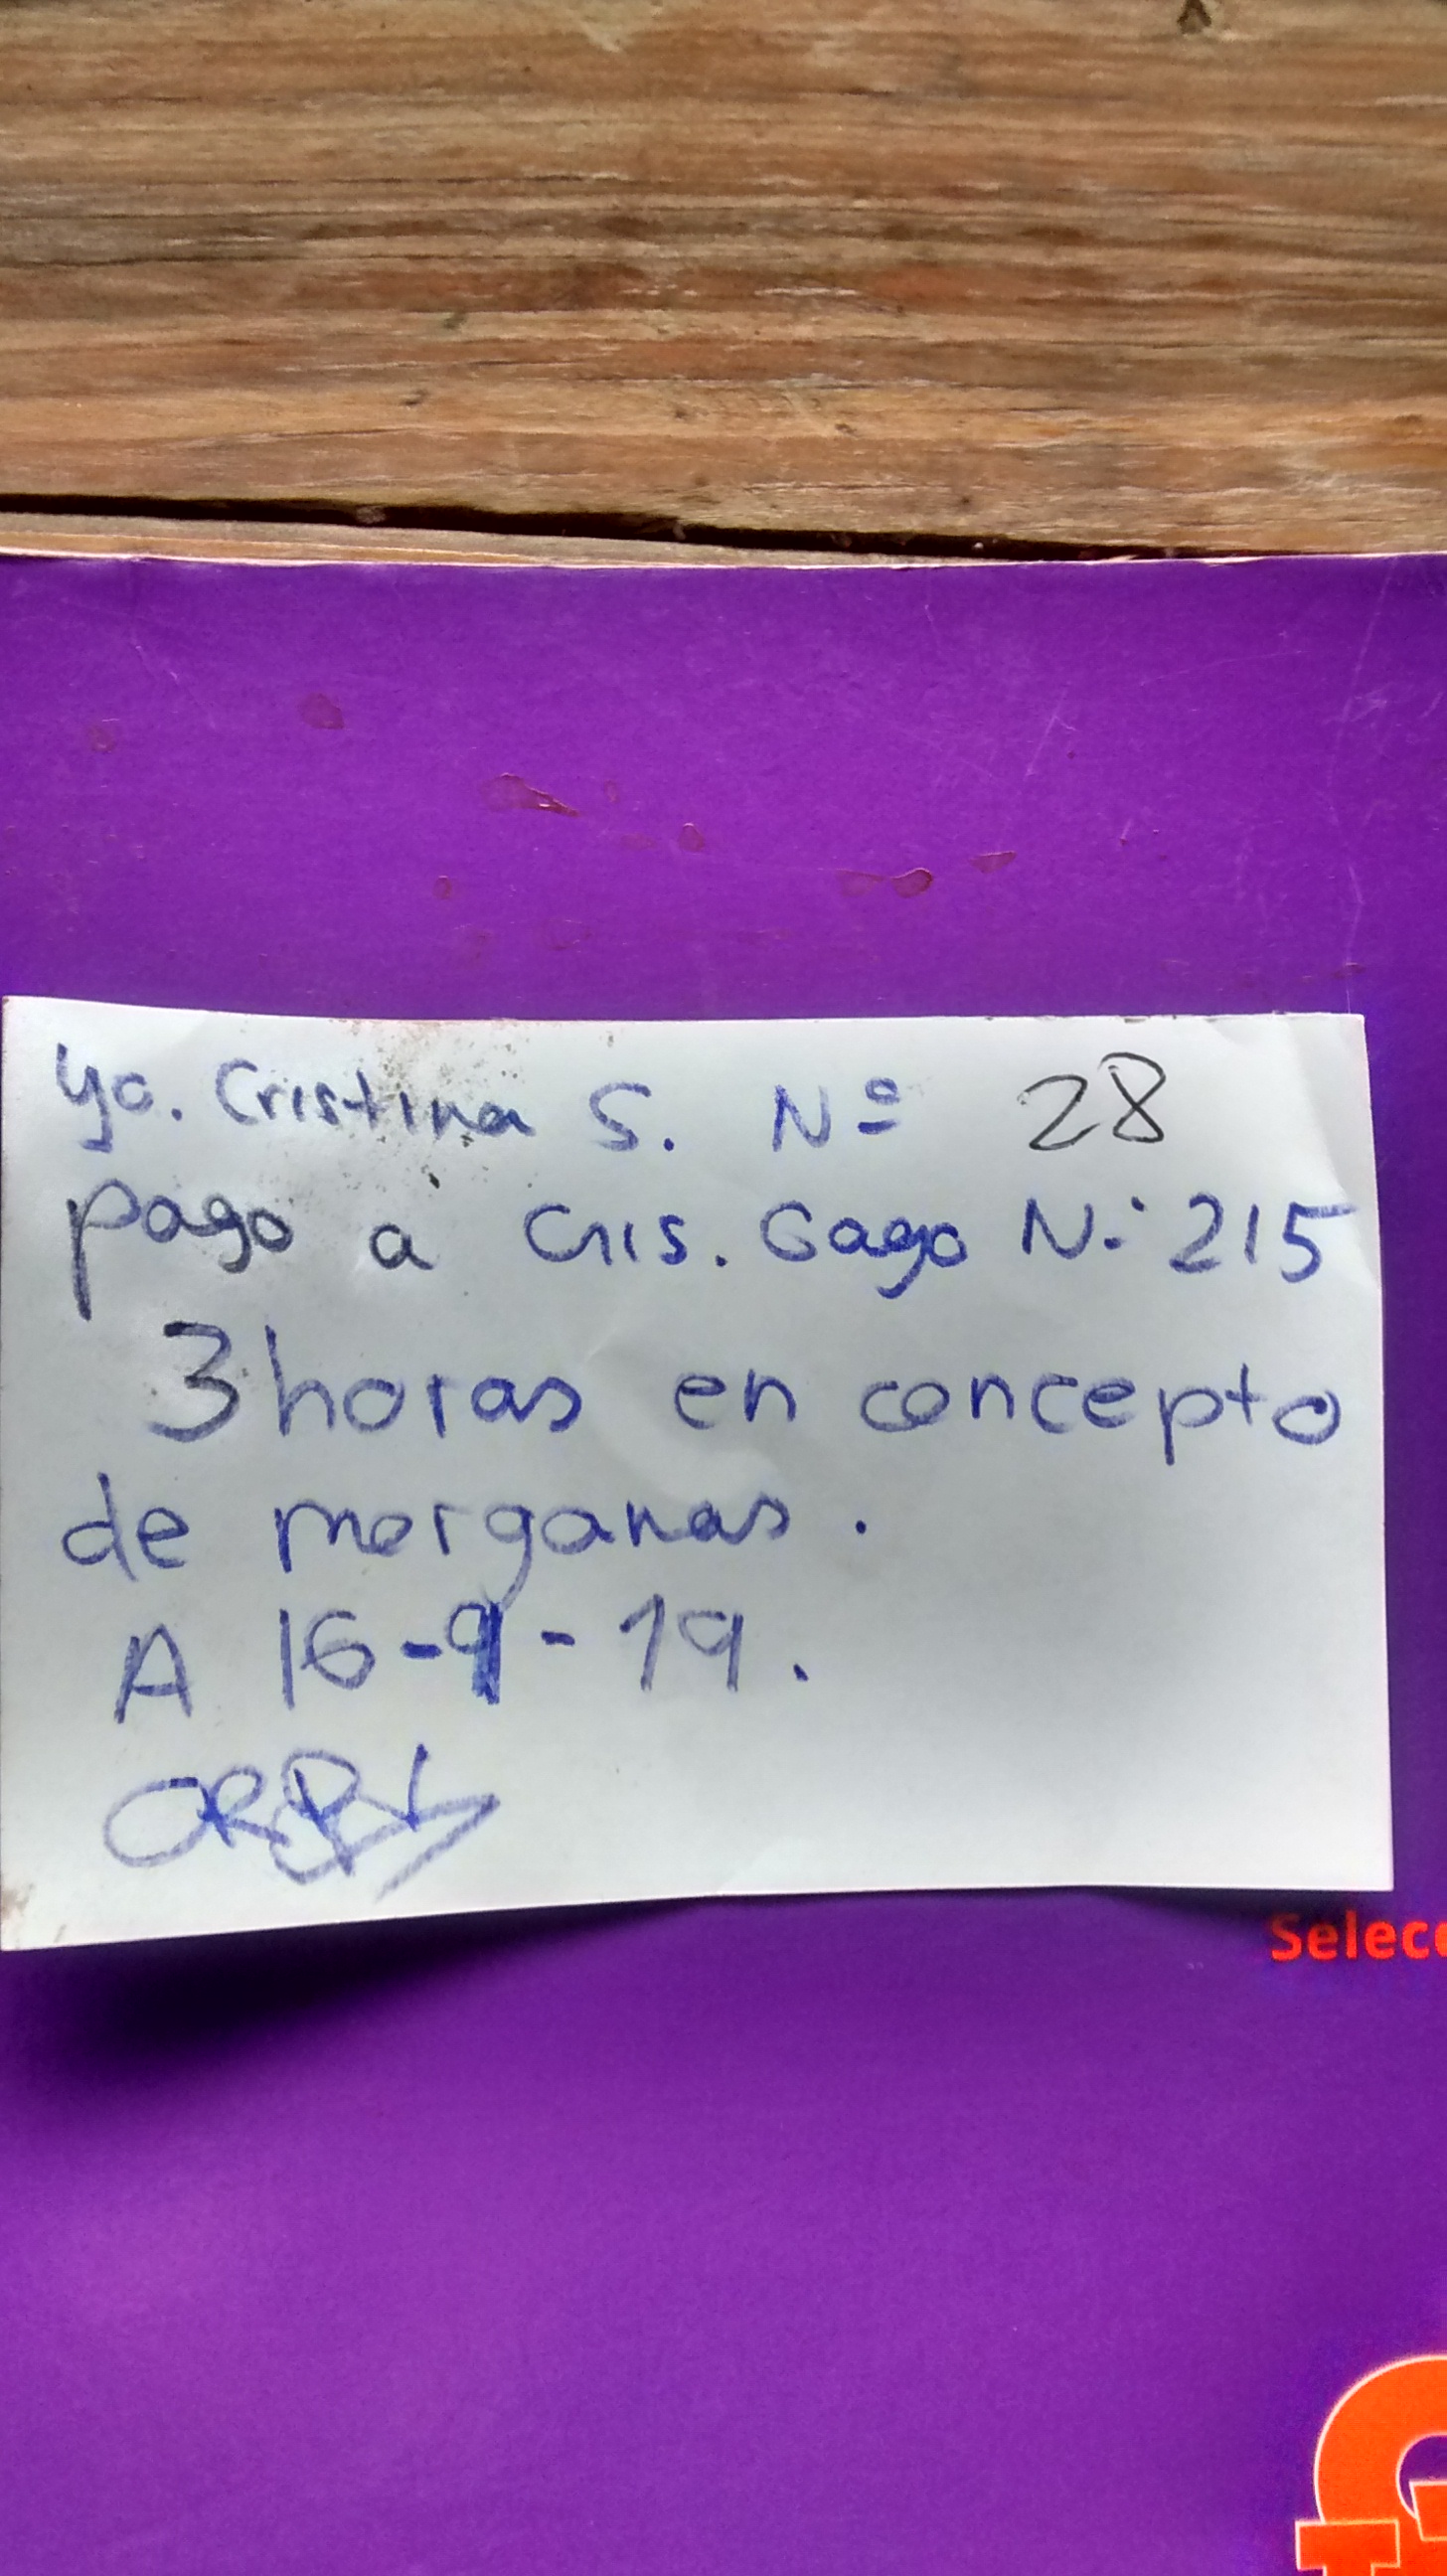 Yo. Cristina S. Nº 28
pago a Cris. Gago N.º 215
3 horas en concepto
de morganas.
A 16-9-19.
Selecc